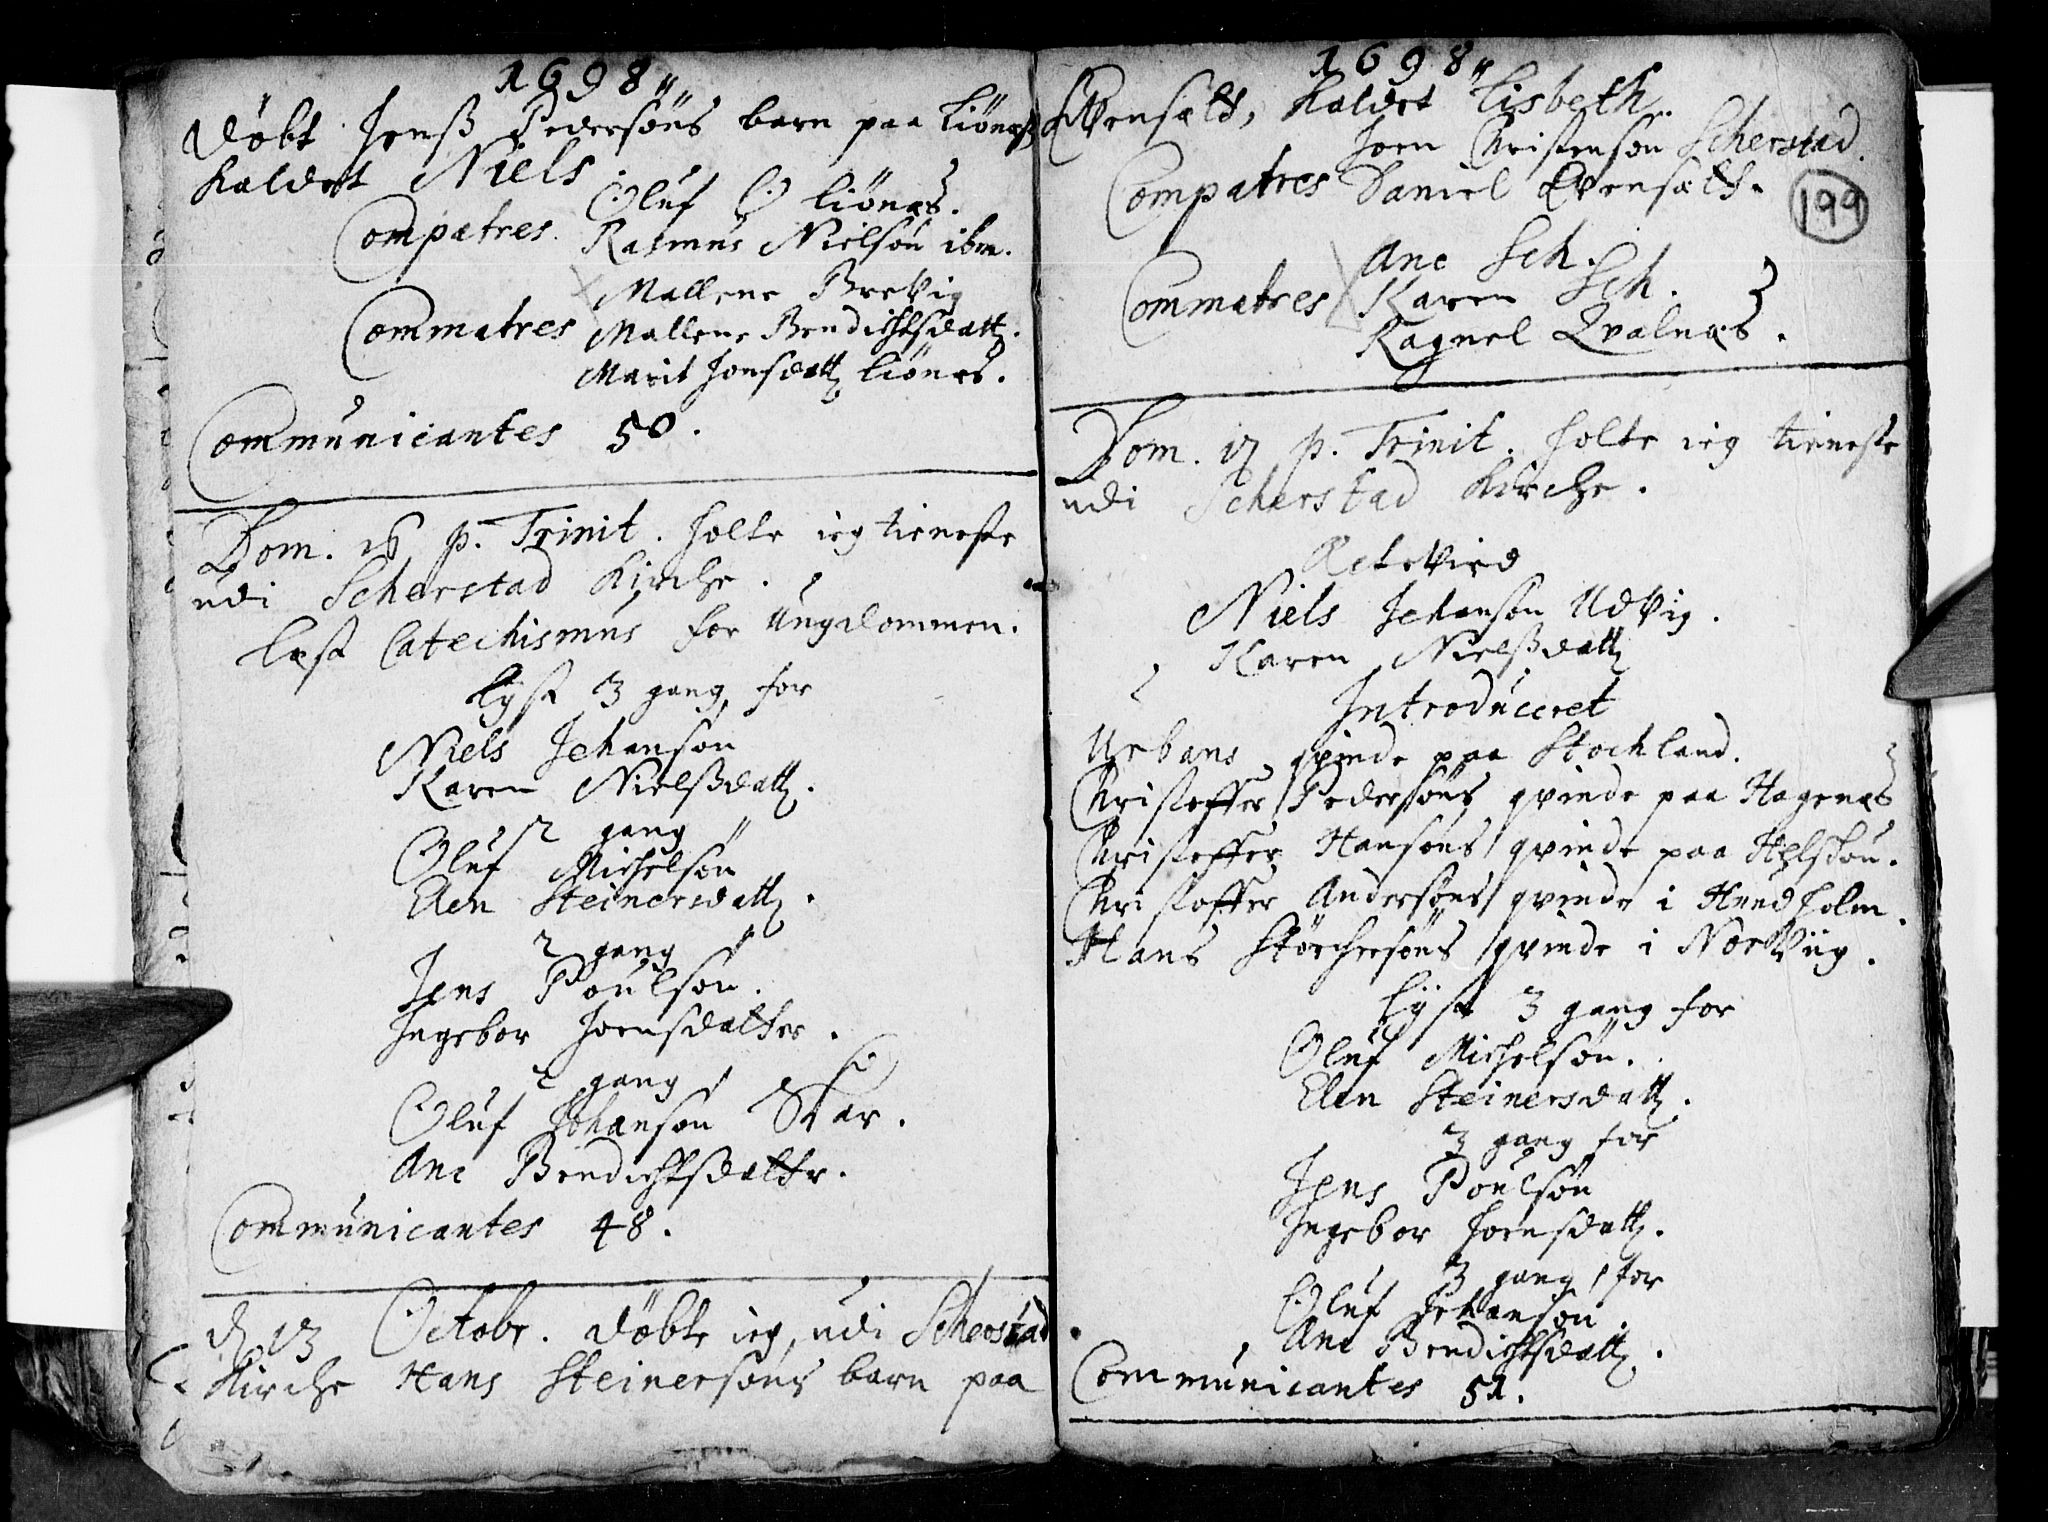 1698
døbt Jenß Pedersöns barn paa Liönæs
kaldet Niels.
Oluf O Liönæs.
Compatres. Rasmus Nielsön ibm.
Mallene Brevig
Commatres Mallene Bendichtsdatt.
Marit Jonsdatt Liönes.
Communicantes 50.
Dom. 16 p. Trinit. holte ieg tieneste
udi Scherstad Kirche.
Læst Catechismus for Ungdommen.
Lyst 3 gang for
Niels Johanson
Karen Nielßdatt.
2 gang
Oluf Michelsøn
Elen Steinersdatt.
2 gang
Jens Poulson.
Ingebor Joensdatter.
2 gang
Oluf Johanson Skar.
Ane Bendichtsdatter.
Communicantes 48.
d 13 Octobr. døbte ieg, udi Scherstad
Kirche Hans Steinersöns barn paa
1698
Evensælt, kaldet Lisbeth.
Joen Christenson Scherstad.
Compatres Daniel Evensælt.
199
Ane Sch.
Commatres Karen Sch.
Ragnel Qvalnæs.
Dom. 17 p. Trinit. holte ieg tieneste
udi Scherstad Kirche.
Echtevied
Niels Johanson Udvig.
Karen Nielßdatt
Introduceret
Urbans qvinde paa Stochland.
Christoffer Pedersöns qvinde paa Hagenæs
Christoffer Hansöns qvinde paa
Christoffer Andersöns qvinde i Hundholm.
Hans Störchersöns qvinde i Norviig.
Lyst 3 gang for
Oluf Michelsøn.
Elen Steinersdatt.
3 gang for
Jens Poulsön
Ingebor Joensdatt.
3 gang for
Oluf Johanson.
Ane Bendichtsdatt.
Communicantes 51.